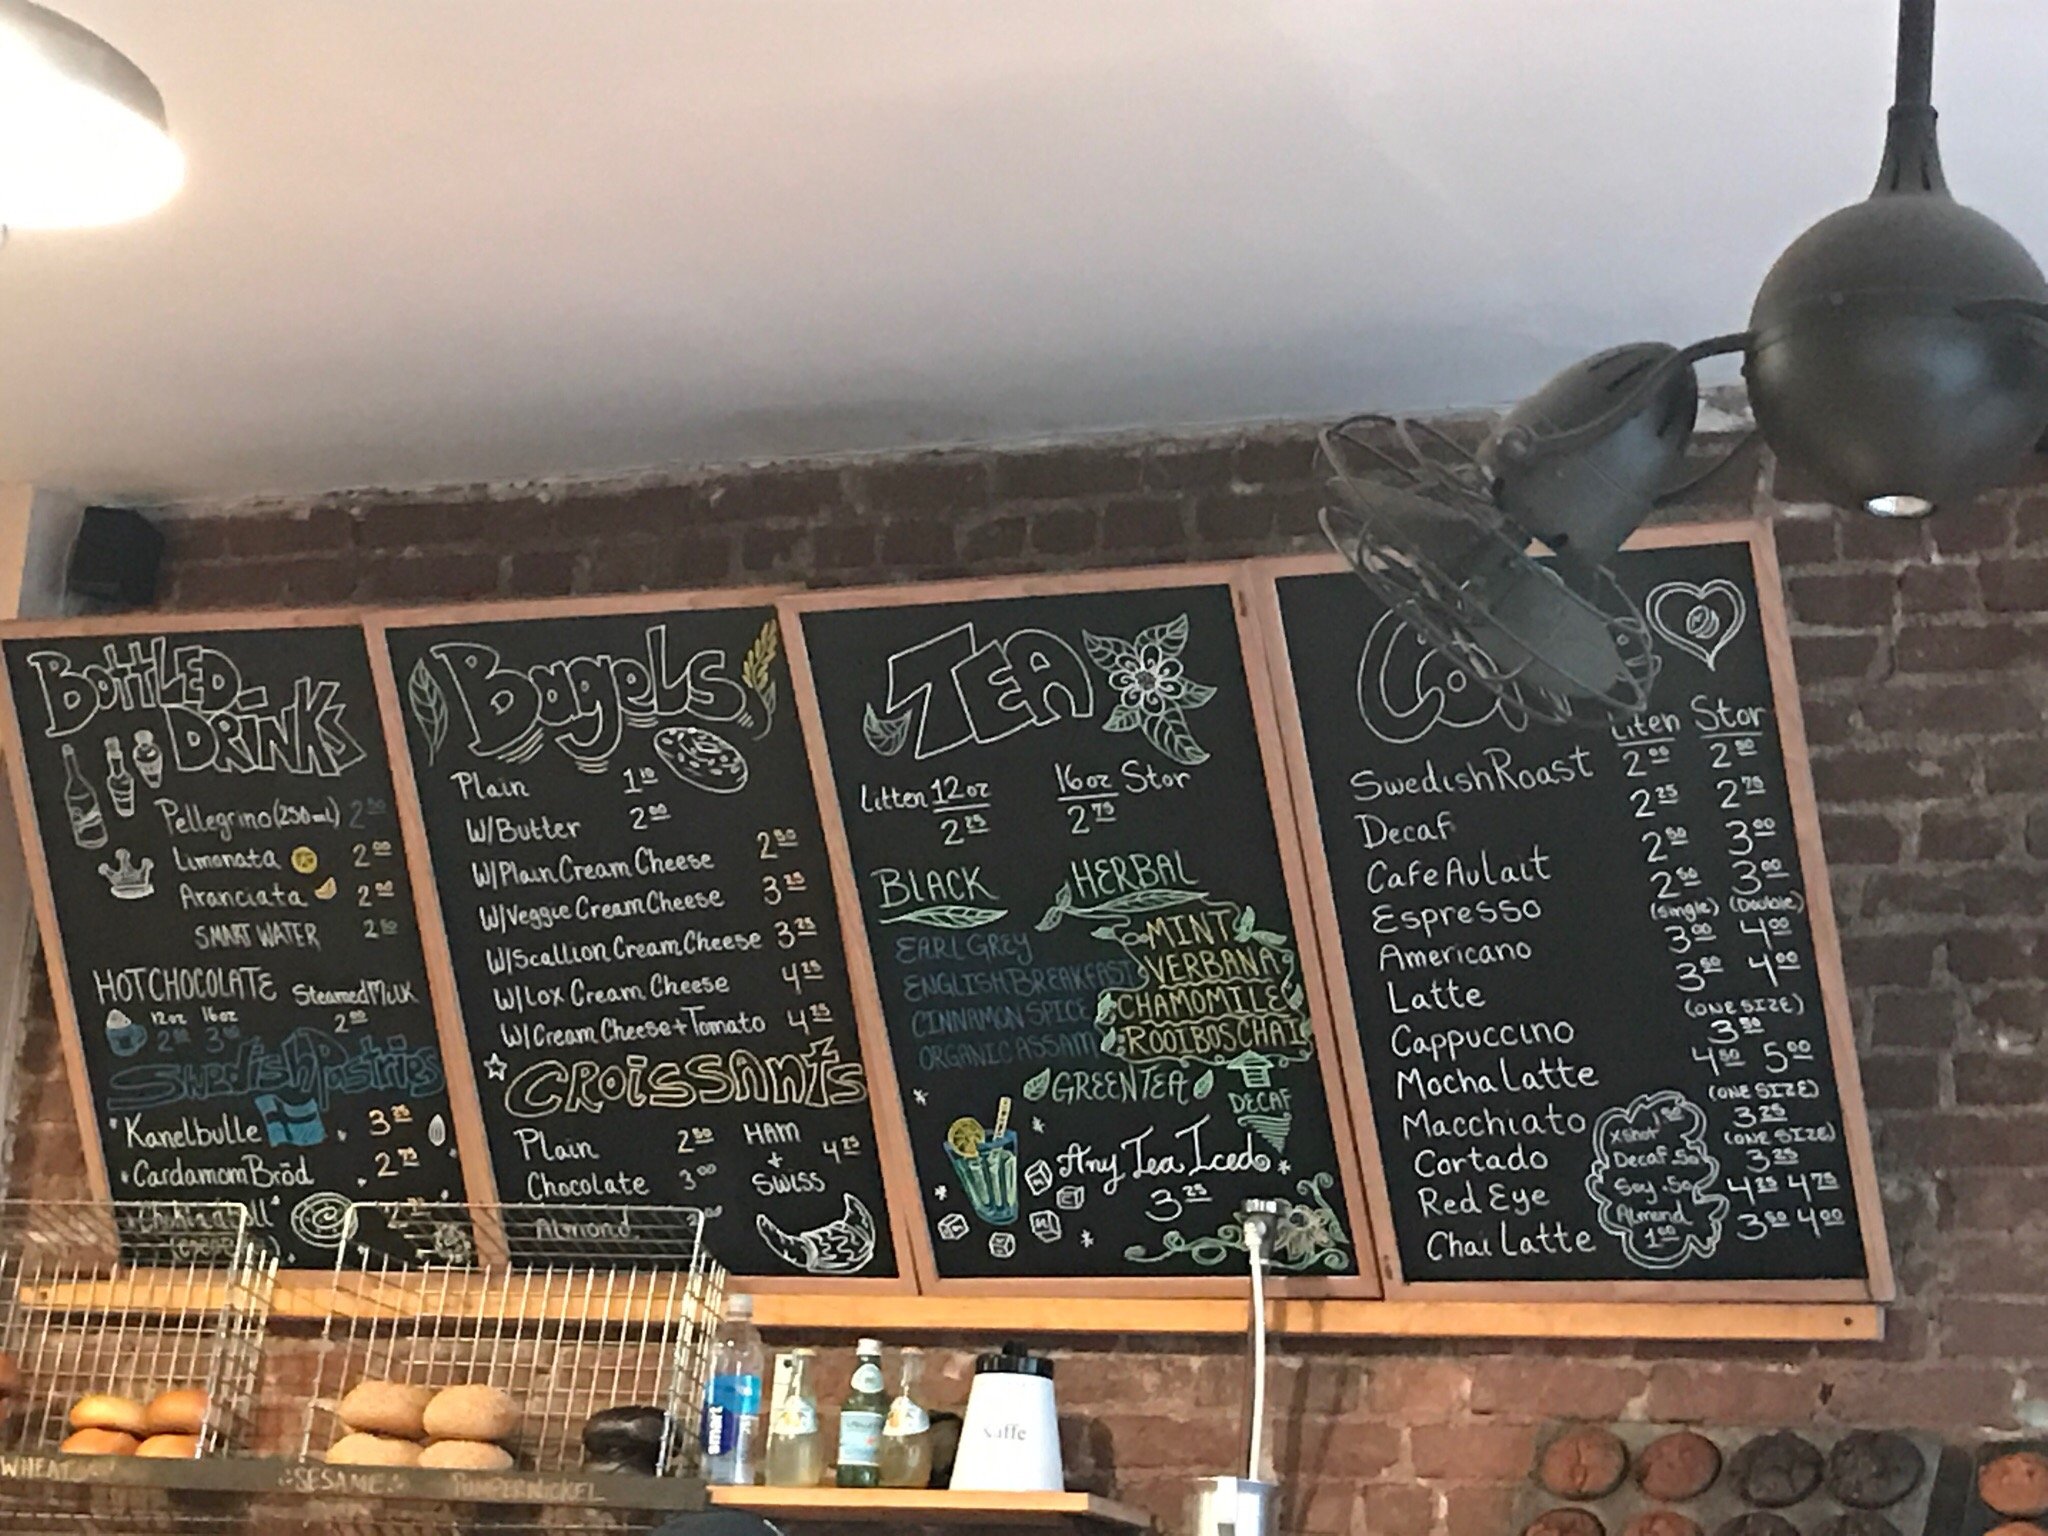 BOTTLED
DRINKS
Pellegrino (250mL) 2.50
Limonata 2.00
Aranciata 2.00
SMART WATER 2.50
HOT CHOCOLATE Steamed Milk
12oz 16oz 2.00
Swedish Pastries
Kanelbulle 3.25
Cardamom Bröd 2.75
Bagels
Plain 1.10
W/Butter 2.00
W/Plain Cream Cheese 2.50
W/Veggie Cream Cheese 3.25
W/Scallion Cream Cheese 3.25
W/Lox Cream Cheese 4.25
W/Cream Cheese + Tomato 4.25
Croissants
Plain 2.50
Chocolate 3.00
Almond
HAM
+
SWISS
4.25
TEA
Litten 12oz 16oz Stor
2.25 2.75
BLACK
EARL GREY
ENGLISH BREAKFAST
CINNAMON SPICE
ORGANIC ASSAM
HERBAL
MINT
VERBANA
CHAMOMILE
ROOIBOS CHAI
GREEN TEA
DECAF
Any Tea Iced
3.25
Liten Stor
Swedish Roast 2.00 2.50
Decaf 2.25 2.75
Cafe Au Lait 2.50 3.00
Espresso 2.50 3.00
(single) (Double)
Americano 3.00 4.00
Latte 3.50 4.00
(ONE SIZE)
Cappuccino 3.50
Mocha Latte 4.50 5.00
(ONE SIZE)
Macchiato 3.25
(ONE SIZE)
Cortado 3.25
Red Eye 4.25 4.75
Chai Latte 3.50 4.00
XShot .50
Decaf .50
Soy .50
Almond
1.00
WHEAT
SESAME
PUMPERNICKEL
smart